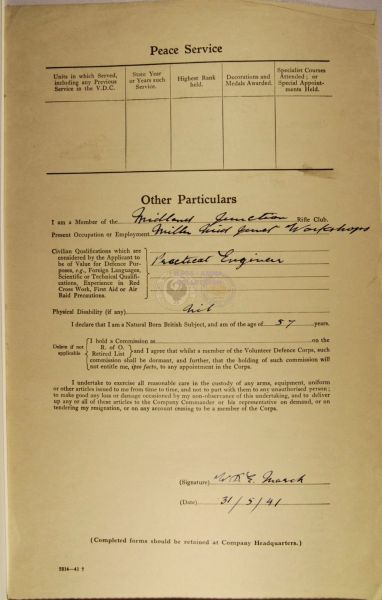 Peace Service
Units in which Served, including any Previous Service in the V.D.C.
State Year or Years such Service.
Highest Rank held.
Decorations and Medals Awarded.
Specialist Courses Attended; or Special Appointments Held.
Other Particulars
I am a Member of the Midland Junction Rifle Club.
Present Occupation or Employment Workshops
Civilian Qualifications which are
considered by the Applicant to
be of Value for Defence Pur-
poses, e.g., Foreign Languages,
Scientific or Technical Qualifi-
cations, Experience in Red
Cross Work, First Aid or Air
Raid Precautions.
Practical Engineer
Physical Disability (if any) Nil
I declare that I am a Natural Born British Subject, and am of the age of 57 years.
Delete if not applicable
I hold a Commission as on the
R. of O.
Retired List
and I agree that whilst a member of the Volunteer Defence Corps, such
commission shall be dormant, and further, that the holding of such commission will
not entitle me, ipso facto, to any appointment in the Corps.
I undertake to exercise all reasonable care in the custody of any arms, equipment, uniform
or other articles issued to me from time to time, and not to part with them to any unauthorised person;
to make good any loss or damage occasioned by my non-observance of this undertaking, and to deliver
up any or all of these articles to the Company Commander or his representative on demand, or on
tendering my resignation, or on any account ceasing to be a member of the Corps.
(Signature) March
(Date) 31/5/41
(Completed forms should be retained at Company Headquarters.)